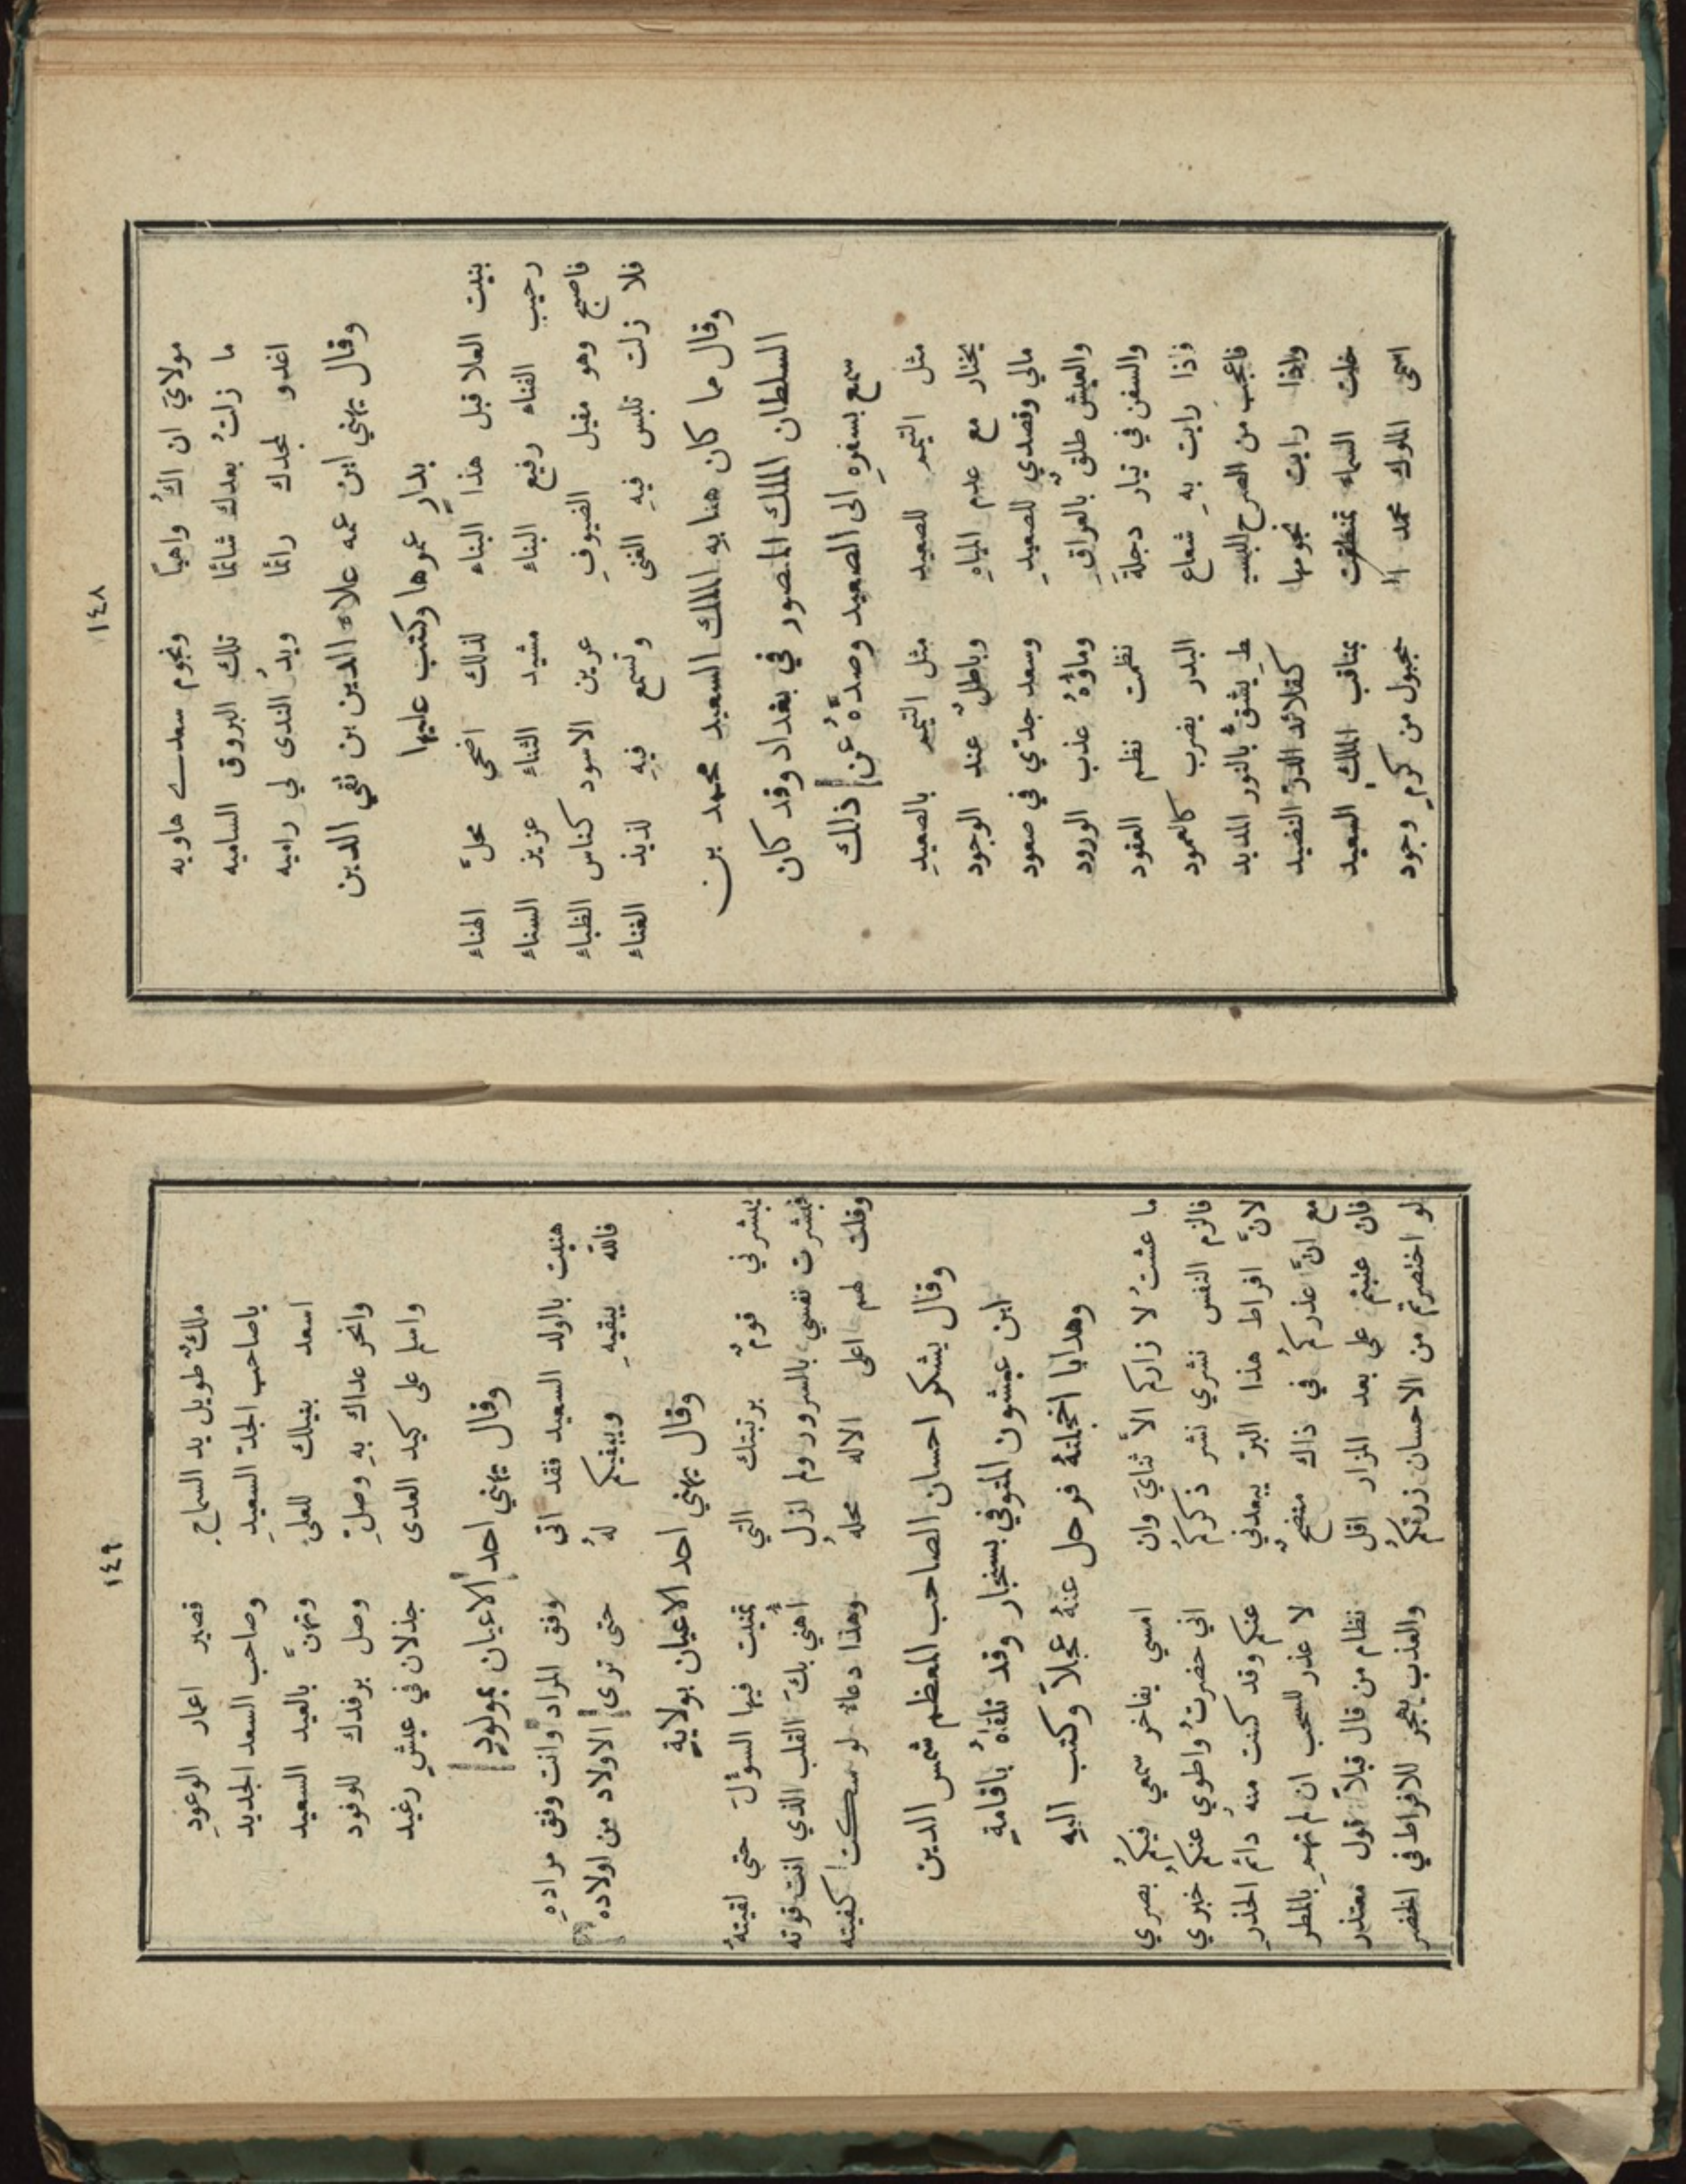 ١٤٨
مولايَ ان اكُ واهيًا ونجوم سعدي هاويه
ما زلتُ بعدك شائمًا تلك البروق الساميه
اغدو لمجدك رائمًا ويدُ الندى لي راميه
وقال يهني ابن عمه علاء الدين بن تقي الدين
بدارٍ عمرها وكتب عليها
بنيت العلا قبل هذا البناء لذلك اضحي محلَّ الهناء
رحيب الفناء رفيع البناء مشيد الثناء عزيز السناء
فاصبح وهو مقيل الضيوفِ عرين الاسود كناس الظباء
فلا زلت تلبس فيهِ الغنى وتسمع فيهِ لذيذ الغناء
وقال مما كان هنا به الملك السعيد محمد بن
السلطان الملك المنصور في بغداد وقد كان
سمع بسفرهِ الى الصعيد وصدَّهُ عن ذلك
مثل التيمم للصعيد مثل التيمم بالصعيدِ
يختار مع عدم المياهِ وباطلٌ عند الوجود
مالي وقصدي للصعيدِ وسعد جدّي في صعود
والعيش طلقٌ بالعراقِ وماؤهُ عذب الورود
والسفن في تيار دجلةَ نظمت نظم العقود
وٕاذا رايت بهِ شعاع البدر يضرب كالعمود
فاعجب من الصرح البسيـ ـطِ يشقُّ بالنور المديد
واذا رايت نجومها كقلائد الدرّ النضيد
خلت السماء تمنطقت بمناقب الملكِ السعيد
اسمى الملوك محمد الـ ـمجبول من كرمٍ وجود
١٤٩
ملكٌ طويل يد السماحِ قصير اعمار الوعودِ
ياصاحب الجدّ السعيدِ وصاحب السعد الجديد
اسعد بنيلك للعلىٰ وتهنَّ بالعيد السعيد
وانحر عداك بهِ وصلِّ وصل برفدك للوفود
واسلم على كيد العدى جذلان في عيشٍ رغيد
وقال يهني احد الاعيان بمولودٍ
هنيت بالولد السعيد فقد اتى وفق المراد وانت وفق مرادهِ
فالله يبقيهِ ويبقيكم لهُ حتى ترى الاولاد من اولاده
وقال يهني احد الاعيان بولايةٍ
يبشرني قومٌ برتبتك التي تمنيت فيها السؤلَ حتى لقيتهُ
فبشرت نفسي بالسرور ولم ازل أُهني بكَ القلب الذي انت قوته
وقلت لهم اعلى الاله محلهُ وهذا دعاءٌ لو سكت كفيته
وقال يشكر احسان الصاحب المعظم شمس الدين
ابن عبشون المتوفي بسنجار وقد تلقاهُ باقامةٍ
وهدايا اخجلتهُ فرحل عنهُ عجلاً وكتب اليهِ
ما عشتُ لا زاركم الاَّ ثنايَ وان امسي يفاخر سمعي فيكمُ بصري
فالزم النفس نشري نشر ذكركمُ اني حضرتُ واطوي عنكمُ خبري
لانَّ افراط هذا البرّ يبعدني عنكم وقد كنت منهُ دائم الحذرِ
مع انَّ عذركمُ في ذاك متضحٌ لا عذر للسحب ان لم تهمِ بالمطر
فان عتبتم على بعد المزار اقل نظام من قال قبلاً قول معتذر
لو اختصرتم من الاحسان زرتكمُ والعذب يهجر للافراط في الخصر